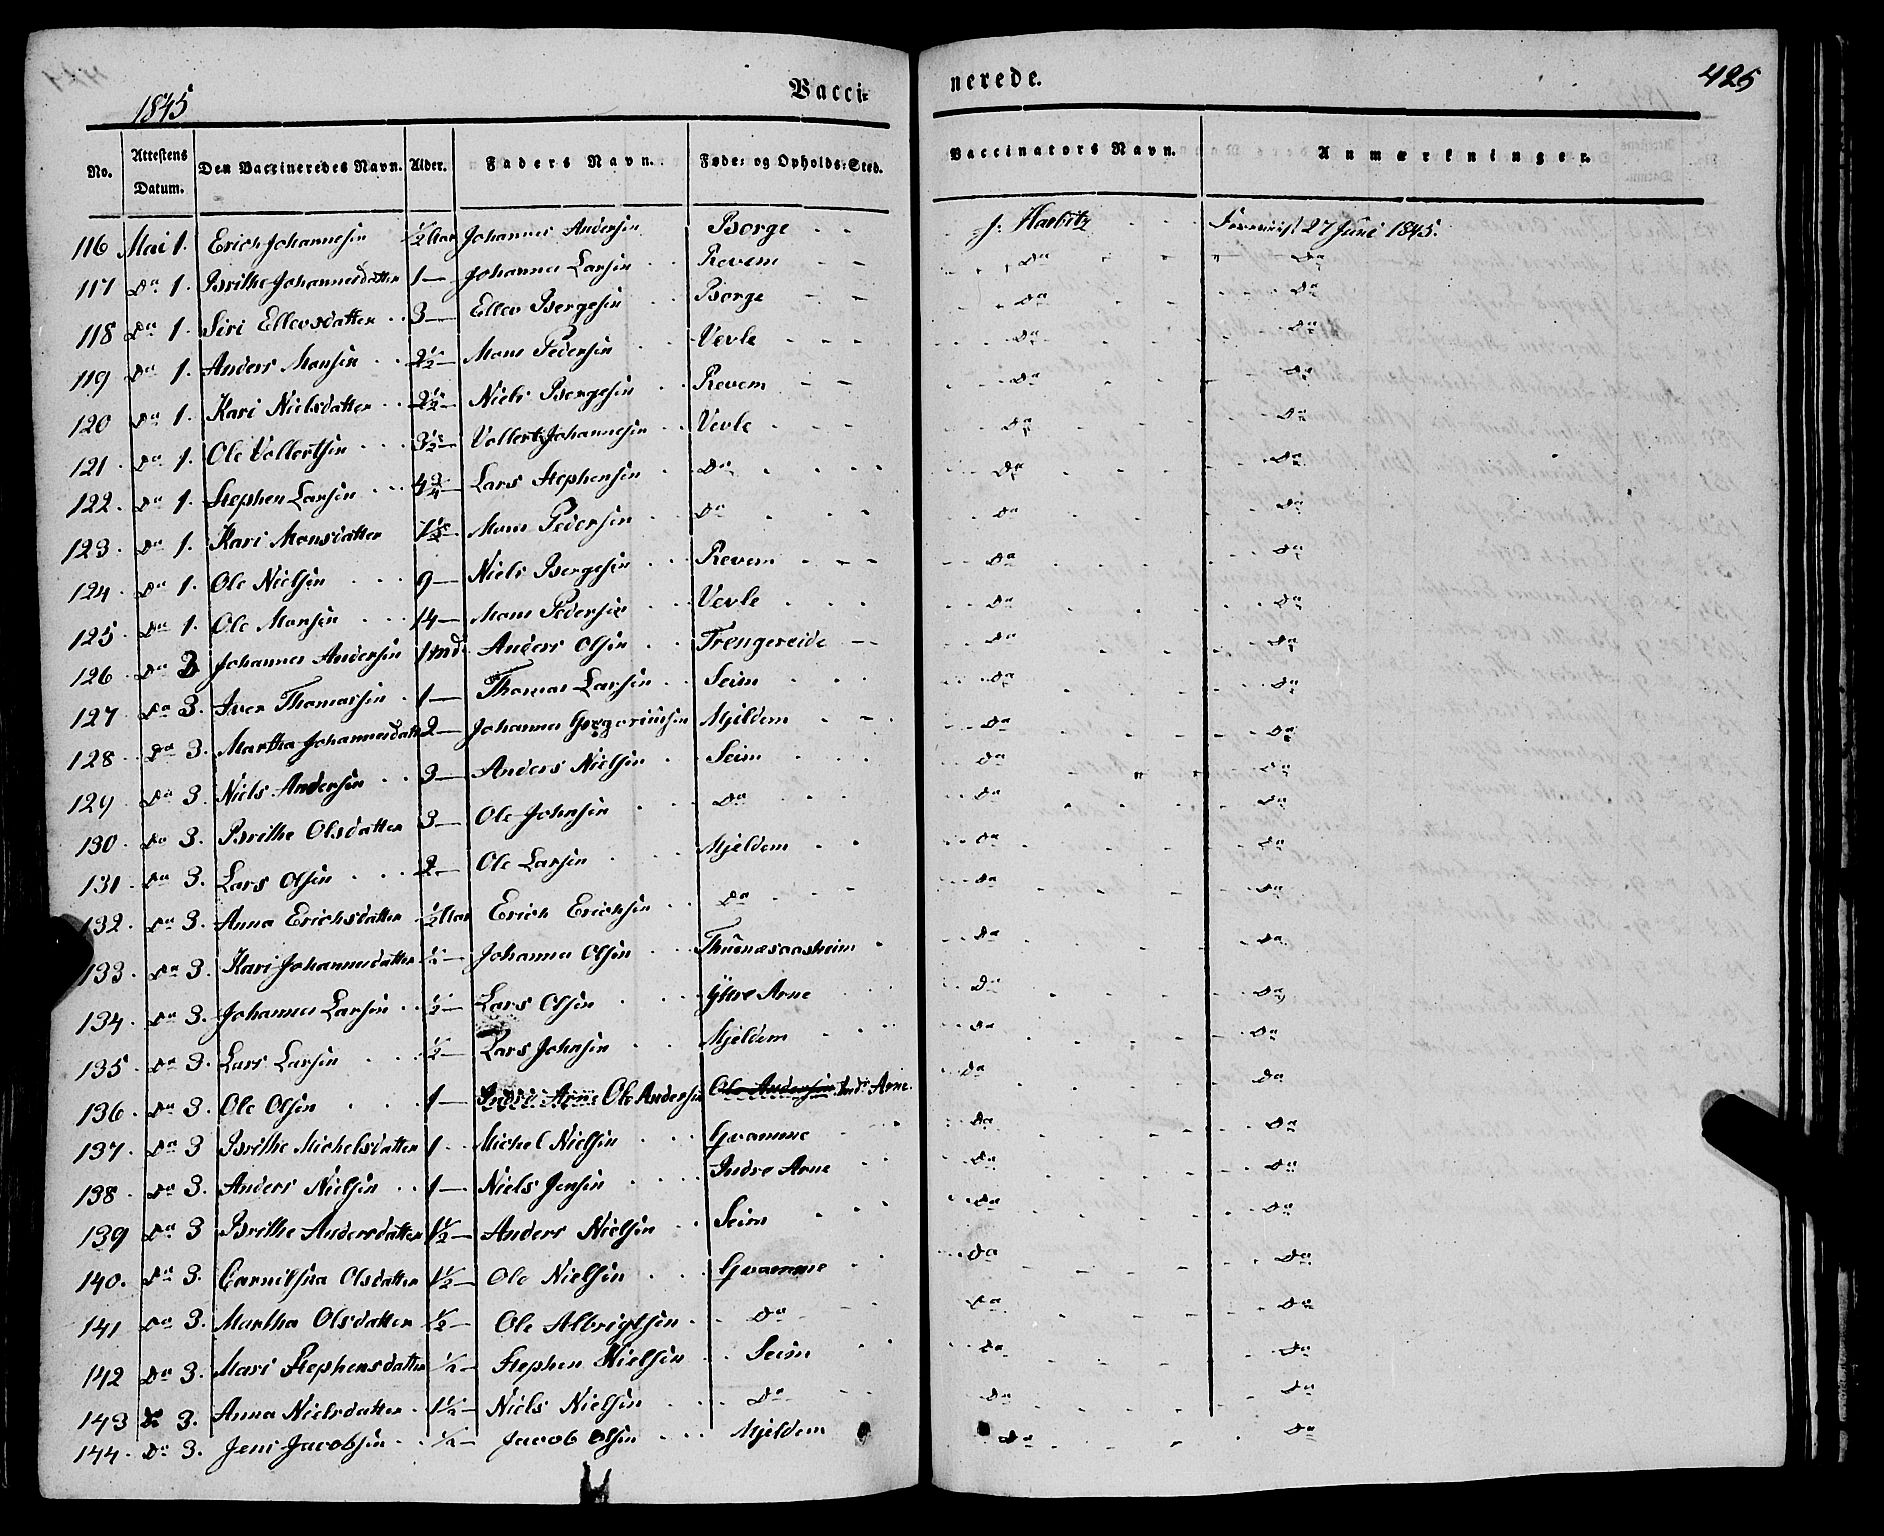 1845 Vaccinerede. 425
No. Attestens Datum. Den Vaccineredes Navn. Alder. Faders Navn. Føde: og Opholds:Sted. Vaccinators Navn. Anmærkninger.
116 Mai 1. Erich Johannesen ½ Aar Johannes Andersen Borge J. Harbitz 27 Juni 1845.
117 Do 1. Brithe Johannesdatter 1 — Johannes Larsen Revem Do Do
118 Do 1. Siri Ellevsdatter 3 — Ellev Børgesen Borge Do Do
119 Do 1. Anders Monsen 2½ — Mons Pedersen Vevle Do Do
120 Do 1. Kari Nielsdatter 2½ — Niels Børgesen Revem Do Do
121 Do 1. Ole Vollertsen 3½ — Vollert Johannesen Vevle Do Do
122. Do 1. Stephen Larsen 4¾ — Lars Stephensen Do Do Do
123. Do 1. Kari Monsdatter 7½ — Mons Pedersen Do Do Do
124. Do 1. Ole Nielsen 9 — Niels Børgesen Revem Do Do
125 Do 1. Ole Monsen 14 — Mons Pedersen Vevle Do Do
126 Do 3 Johannes Andersen Anders Olsen Trengereide Do Do
127 Do 3. Iver Thomassen 1 — Thomas Larsen Seim Do Do
128 Do 3. Martha Johannesdatter 2 — Johannes Gregoriusen Mjeldem Do Do
129 Do 3. Niels Andersen 3 — Anders Nielsen Seim Do Do
130 Do 3. Brithe Olsdatter 3 — Ole Johnsen Do Do Do
131 Do 3. Lars Olsen 2 — Ole Larsen Mjeldem Do Do
132. Do 3. Anna Erichsdatter ½ Aar Erich Erichsen Do Do Do
133. Do 3. Kari Johannesdatter ½ — Johannes Olsen Do Do
134. Do 3. Johannes Larsen ½ — Lars Olsen Yttre Arne Do Do
135 Do 3. Lars Larsen ½ — Lars Johnsen Mjeldem Do Do
136 Do 3. Ole Olsen 1 — Indre Arne Ole Andersen Ole Andersen Indr Arne. Do Do
137. Do 3 Brithe Michelsdatter 1 Michel Nielsen Gvamme Do Do
138 Do 3. Anders Nielsen 1 — Niels Jensen Indre Arne Do Do
139 Do 3 Brithe Andersdatter 1½ — Anders Nielsen Seim Do Do
140. Do 3. Olsdatter 1½ — Ole Nielsen Gvamme Do Do
141 Do 3. Martha Olsdatter ½ — Ole Albrigtsen Do Do Do
142 Do 3. Mari Stephensdatter ½ — Stephen Nielsen Seim Do Do
143 Do 3. Anna Nielsdatter 1½ — Niels Nielsen Do Do Do
144. Do 3. Jens Jacobsen ½ — Jacob Olsen Mjeldem Do Do